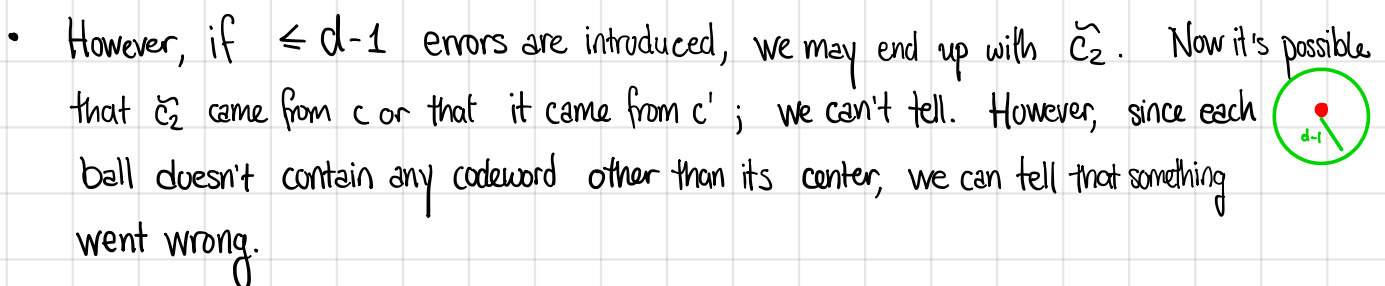 • However, if ≤ d-1 errors are introduced, we may end up with c̃₂. Now it's possible
that c̃₂ came from c or that it came from c' ; we can't tell. However, since each
d-1
ball doesn't contain any codeword other than its center, we can tell that something
went wrong.